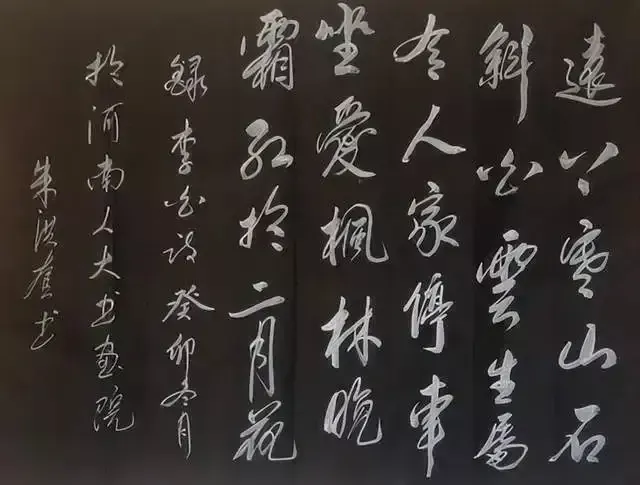 遠上寒山石
斜白雲生處
人家停車
坐愛楓林晚
霜紅於二月花
錄李白詩癸卯冬月
於河南人大书画院
朱洪书